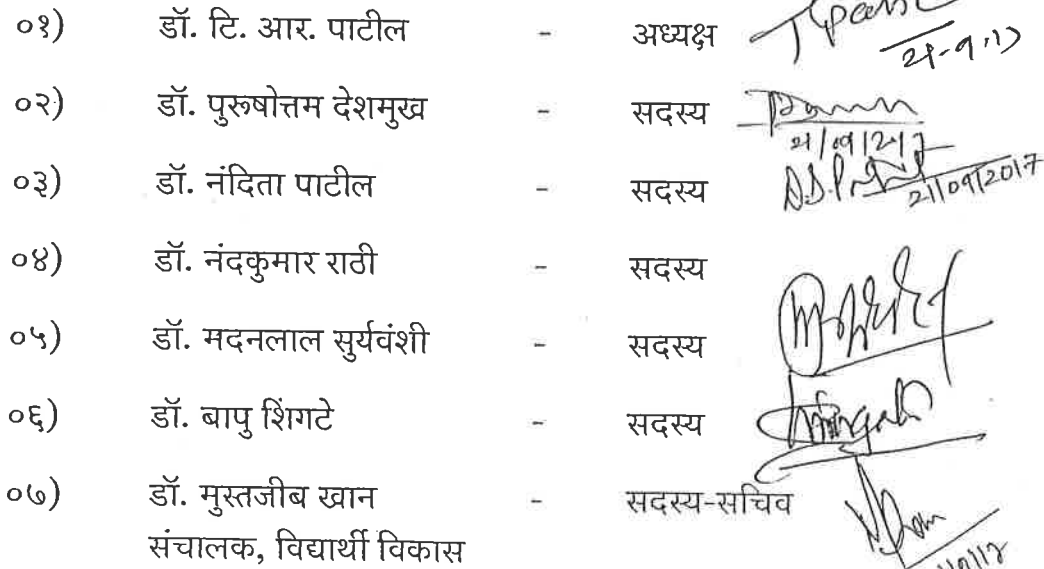 ०१) डॉ. टि. आर. पाटील - अध्यक्ष
21-9-17
०२) डॉ. पुरूषोत्तम देशमुख - सदस्य
०३) डॉ. नंदिता पाटील - सदस्य
21/09/2017
०४) डॉ. नंदकुमार राठी - सदस्य
०५) डॉ. मदनलाल सुर्यवंशी - सदस्य
०६) डॉ. बापु शिंगटे - सदस्य
०७) डॉ. मुस्तजीब खान - सदस्य-सचिव
संचालक, विद्यार्थी विकास